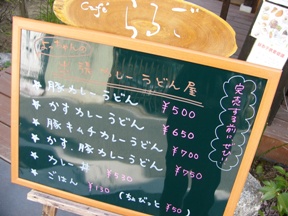 Café
らるご
ばーちゃんの
カレーうどん屋
★ 豚カレーうどん ¥500
★ かすカレーうどん ¥650
★ 豚キムチカレーうどん ¥700
★ かす、豚うどん ¥750
★ カレー丼 ¥530
★ ごはん ¥130
(ちょびっと ¥50)
完売する前にぜひ!!